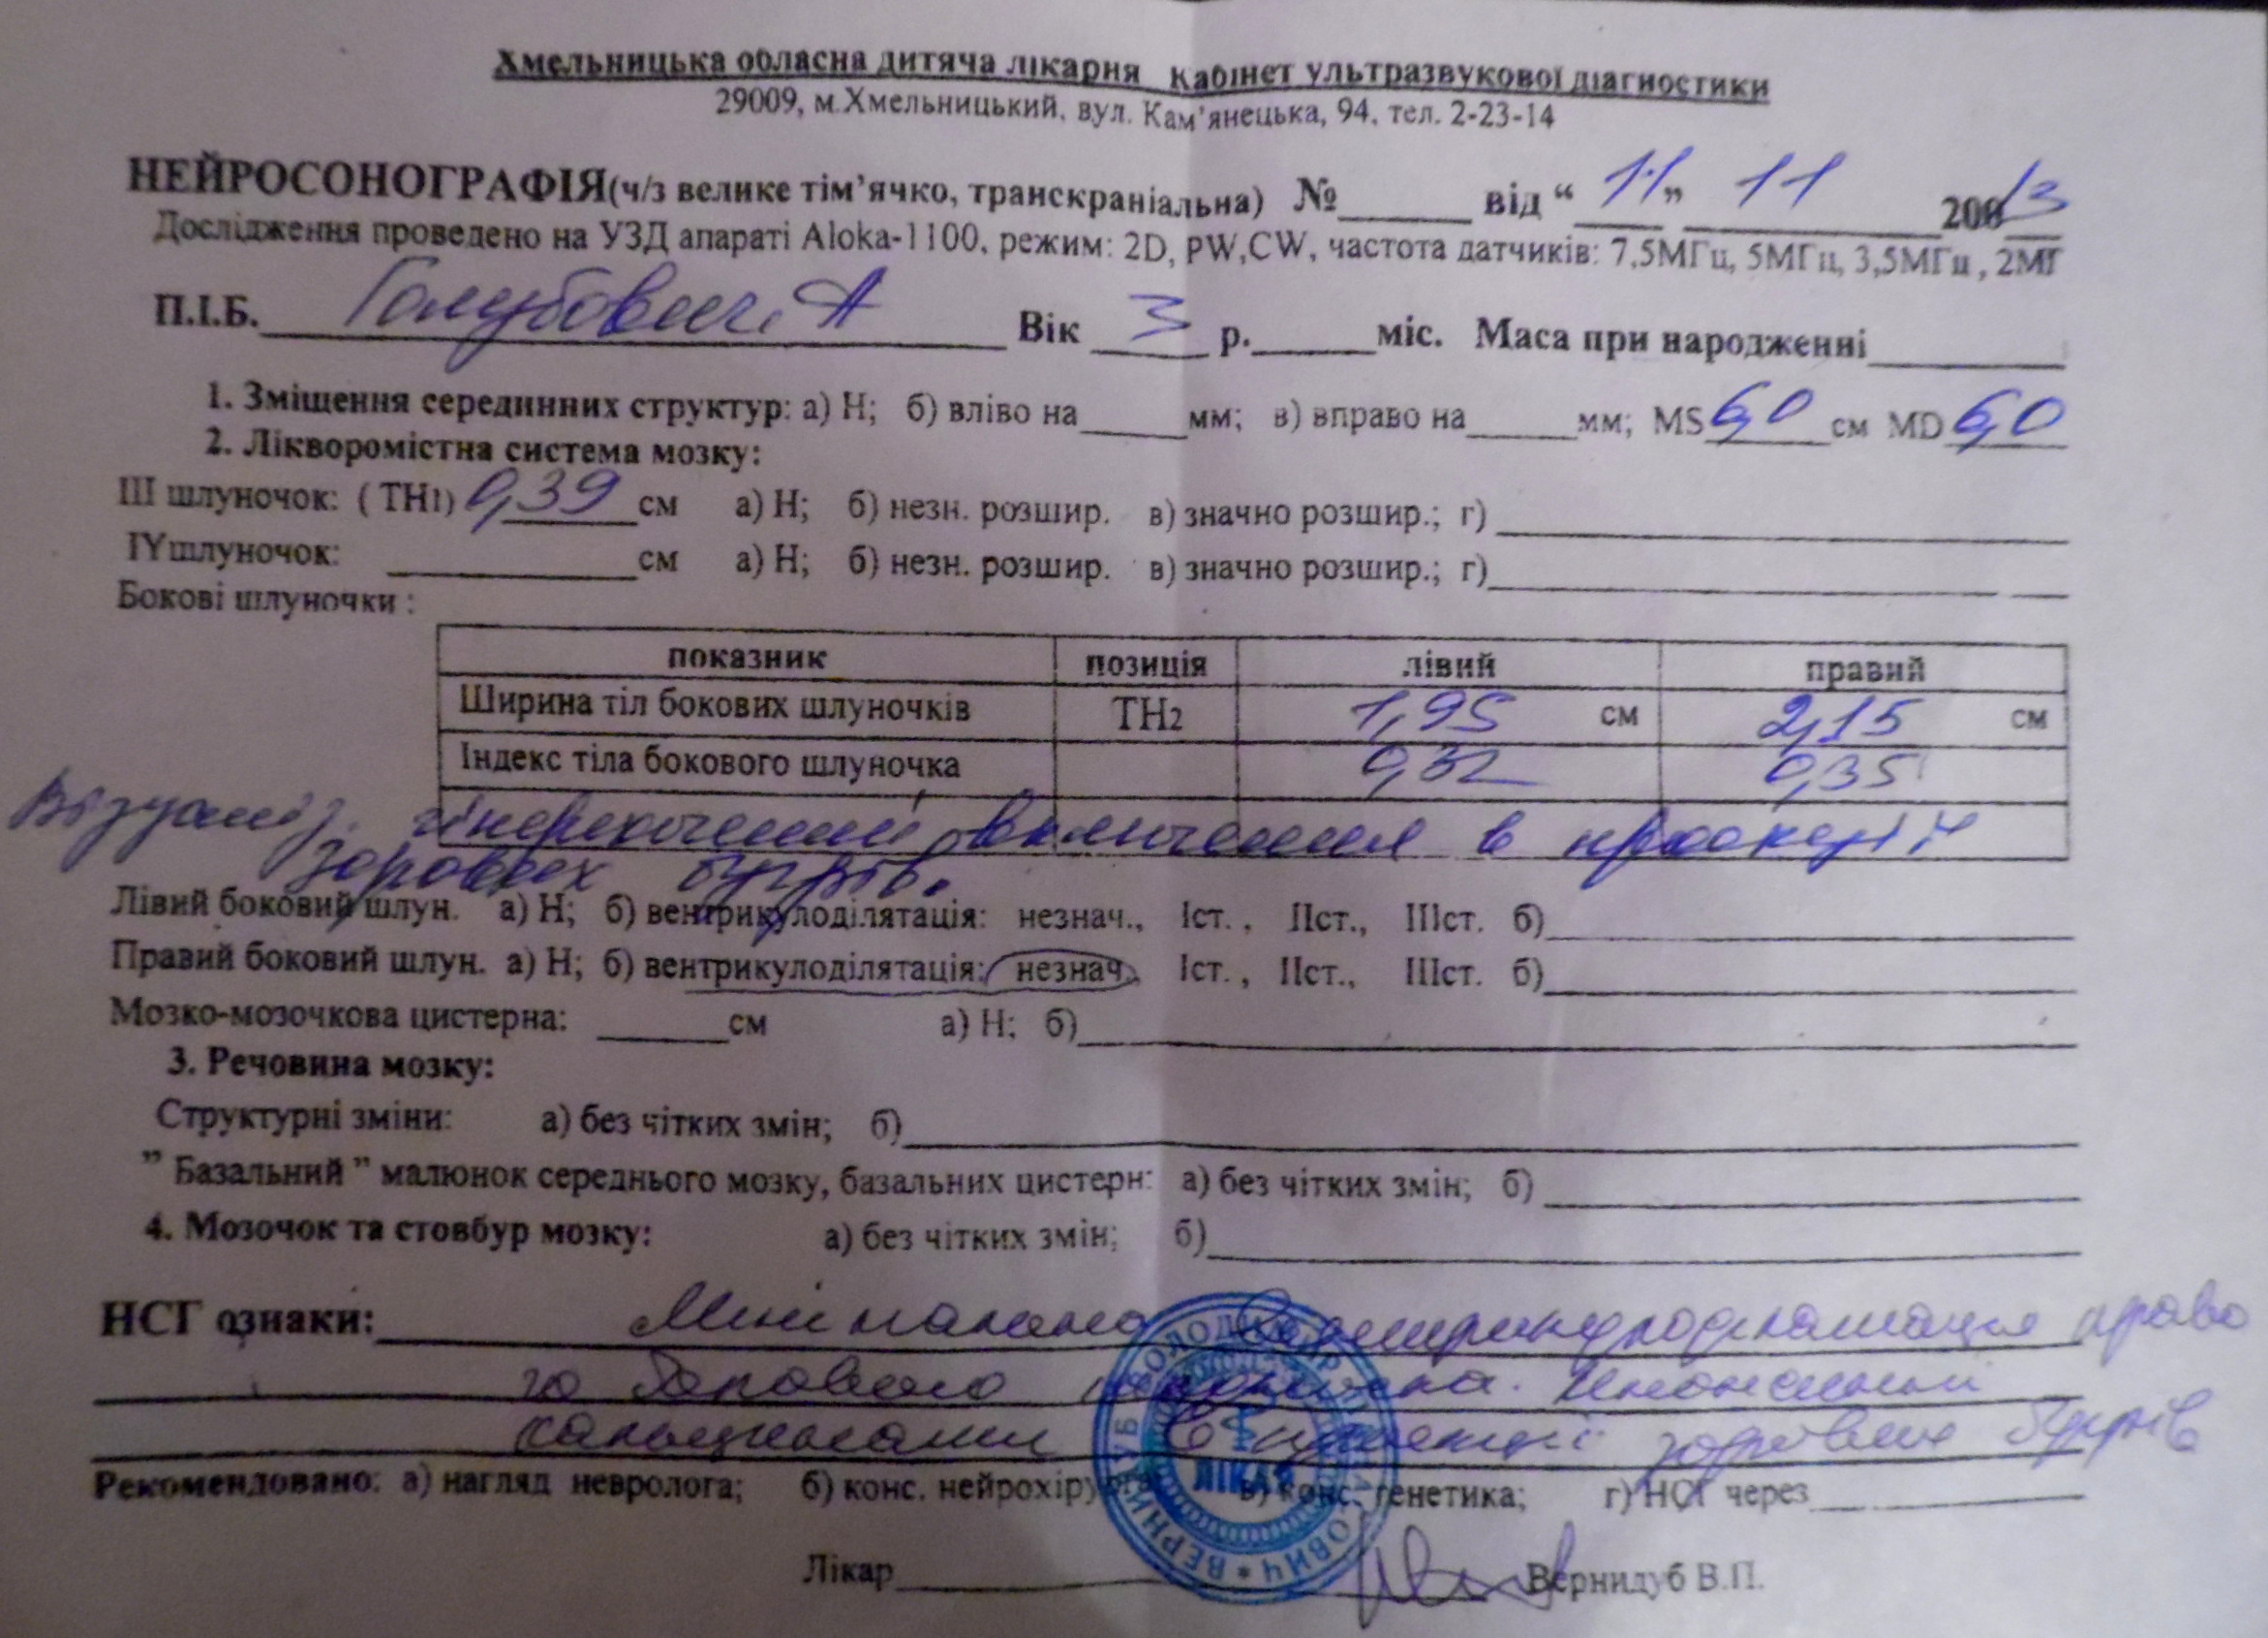 Хмельницька обласна дитяча лікарня кабінет ультразвукової діагностики
29009, м.Хмельницький, вул. Кам’янецька, 94, тел. 2-23-14
НЕЙРОСОНОГРАФІЯ(ч/з велике тім’ячко, транскраніальна) №______ від “11” 11 20013
Дослідження проведено на УЗД апараті Aloka-1100, режим: 2D, PW,CW, частота датчиків: 7,5МГц, 5МГц, 3,5МГц, 2МГ
П.І.Б. Голубович А Вік 3 р.______міс. Маса при народженні______
1. Зміщення серединних структур: а) Н; б) вліво на______мм; в) вправо на______мм; MS 6,0 см MD 6,0
2. Лікворомістна система мозку:
ІІІ шлуночок: ( ТН1) 0,39 см а) Н; б) незн. розшир. в) значно розшир.; г)______
ІYшлуночок: ______см а) Н; б) незн. розшир. в) значно розшир.; г)______
Бокові шлуночки :
показник позиція лівий правий
Ширина тіл бокових шлуночків ТН2 1,95 см 2,15 см
Індекс тіла бокового шлуночка 0,32 0,35
Візуаліз. гіперехогенні включення в проекції
зорових бугрів.
Лівий боковий шлун. а) Н; б) вентрикулоділятація: незнач., Іст. , ІІст., ІІІст. б)______
Правий боковий шлун. а) Н; б) вентрикулоділятація: незнач., Іст. , ІІст., ІІІст. б)______
Мозко-мозочкова цистерна: ______см а) Н; б)______
3. Речовина мозку:
Структурні зміни: а) без чітких змін; б)______
” Базальний ” малюнок середнього мозку, базальних цистерн: а) без чітких змін; б)______
4. Мозочок та стовбур мозку: а) без чітких змін; б)______
НСГ ознаки: Мінімальна вентрикулоділатація право
го бокового шлуночка.
кальцинати в проекції зорових бугрів
Рекомендовано: а) нагляд невролога; б) конс. нейрохірурга; в) конс. генетика; г) НСГ через______
ЛІКАР
Лікар______ Вернидуб В.П.